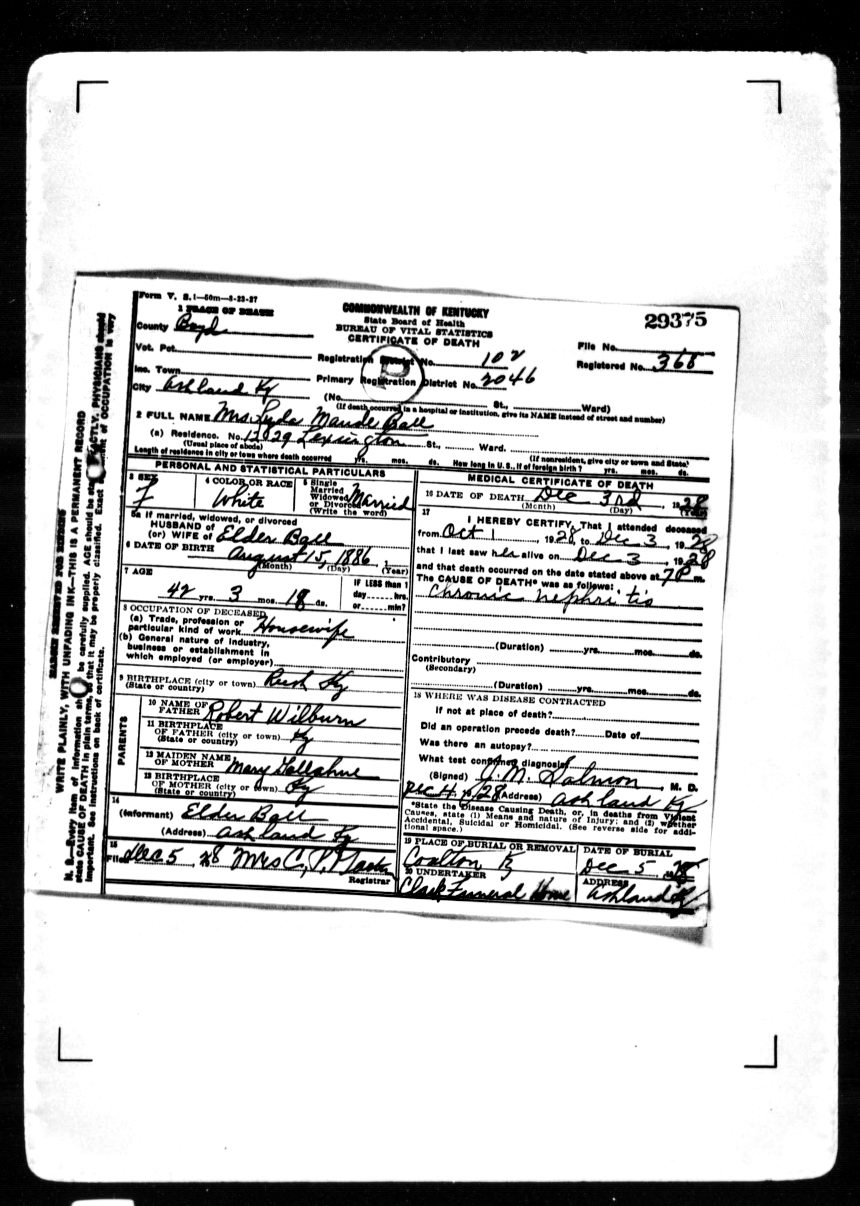 Form V. S. 1—50m—8-23-27
1 PLACE OF DEATH
COMMONWEALTH OF KENTUCKY
State Board of Health
BUREAU OF VITAL STATISTICS
CERTIFICATE OF DEATH
29375
County Boyd
File No.
Vot. Pct.
Registration District No. 102
Registered No. 368
Inc. Town
Primary Registration District No. 2046
City Ashland Ky
(No. St., Ward)
(If death occurred in a hospital or institution, give its NAME instead of street and number)
2 FULL NAME Mrs. Lyda Maude Ball
(a) Residence. No. Lexington St., Ward.
(Usual place of abode) (If nonresident, give city or town and State)
Length of residence in city or town where death occurred yrs. mos. ds. How long in U. S., if of foreign birth? yrs. mos. ds.
PERSONAL AND STATISTICAL PARTICULARS
3 SEX F
4 COLOR OR RACE White
5 Single Married Widowed or Divorced (Write the word) Married
5a If married, widowed, or divorced
HUSBAND of
(or) WIFE of Elder Ball
6 DATE OF BIRTH August 15, 1886
(Month) (Day) (Year)
7 AGE
42 yrs. 3 mos. 18 ds.
IF LESS than 1
day hrs.
or min?
8 OCCUPATION OF DECEASED
(a) Trade, profession or
particular kind of work Housewife
(b) General nature of industry,
business or establishment in
which employed (or employer)
9 BIRTHPLACE (city or town) Rush Ky
(State or country)
PARENTS
10 NAME OF FATHER Robert Wilburn
11 BIRTHPLACE
OF FATHER (city or town) Ky
(State or country)
12 MAIDEN NAME
OF MOTHER Mary
13 BIRTHPLACE
OF MOTHER (city or town) Ky
(State or country)
14
(Informant) Elder Ball
(Address) Ashland Ky
15
Filed Dec 5, 28 Mrs C. P.
Registrar
MEDICAL CERTIFICATE OF DEATH
16 DATE OF DEATH Dec 3rd, 1928
(Month) (Day) (Year)
17
I HEREBY CERTIFY, That I attended deceased
from Oct 1, 1928 to Dec 3, 1928
that I last saw her alive on Dec 3, 1928
and that death occurred on the date stated above at 7 P m.
The CAUSE OF DEATH* was as follows:
Chronic nephritis
(Duration) yrs. mos. ds.
Contributory
(Secondary)
(Duration) yrs. mos. ds.
18 WHERE WAS DISEASE CONTRACTED
If not at place of death?
Did an operation precede death? Date of
Was there an autopsy?
What test confirmed diagnosis?
(Signed) J. M. Salmon, M. D.
Dec 4, 1928 (Address) Ashland Ky
*State the Disease Causing Death, or, in deaths from Violent
Causes, state (1) Means and nature of Injury; and (2) whether
Accidental, Suicidal or Homicidal. (See reverse side for addi-
tional space.)
19 PLACE OF BURIAL OR REMOVAL
Coalton Ky
DATE OF BURIAL
Dec 5, 1928
20 UNDERTAKER
Clark Funeral Home
ADDRESS
Ashland Ky
MARGIN RESERVED FOR BINDING
WRITE PLAINLY, WITH UNFADING INK—THIS IS A PERMANENT RECORD
N. B.—Every item of information should be carefully supplied. AGE should be stated EXACTLY. PHYSICIANS should
state CAUSE OF DEATH in plain terms, so that it may be properly classified. Exact statement of OCCUPATION is very
important. See instructions on back of certificate.